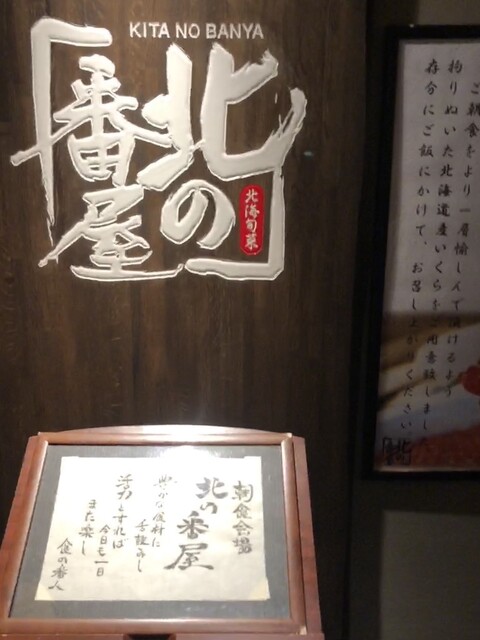 KITA NO BANYA
北の
番屋
北海旬菜
ご朝食をより一層愉しんで頂けるよう
拘りぬいた北海道産いくらをご用意致しました
存分にご飯にかけて、お召し上がりください
朝食会場
北の番屋
豊かな食材に
舌鼓みし
活力とすれば
今日も一日
また楽し
食の番人